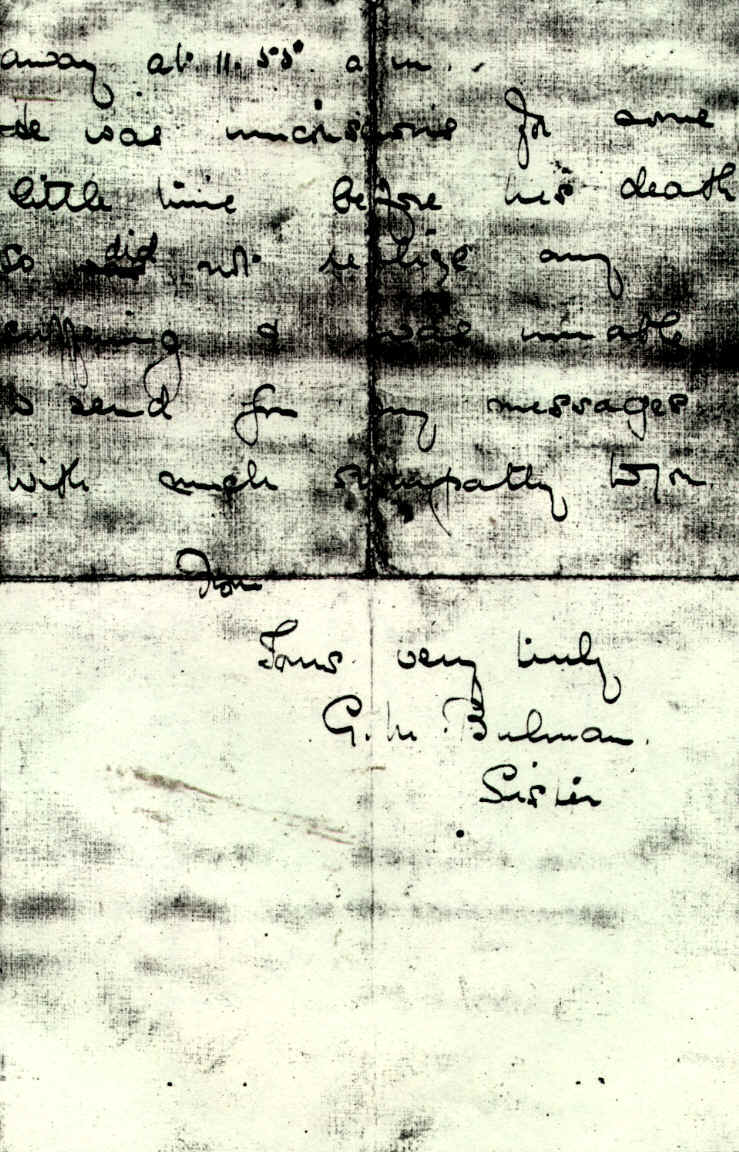 away at 11.55 a.m.
He was unconscious for some
little time before his death
so did not realize any
suffering & was unable
to send for any messages
With much sympathy to you
from
Yours very truly
G. M. Bulman.
Sister